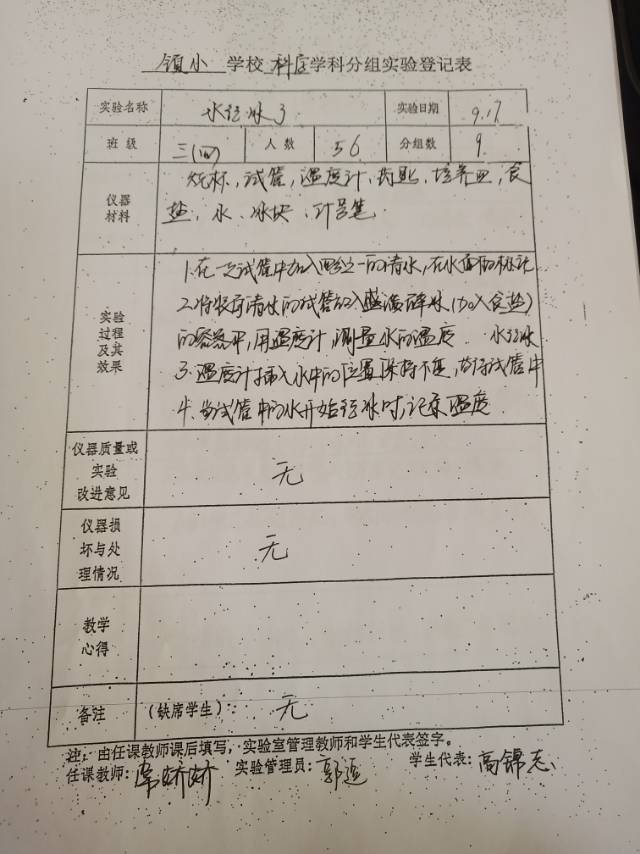 镇小 学校 科学学科分组实验登记表
实验名称 水结冰了 实验日期 9.17
班级 三(四) 人数 56 分组数 9
仪器材料 烧杯、试管、温度计、药匙、培养皿、食
盐、水、冰块、计号笔
实验过程及其效果
1.在一支试管中加入四分之一的清水,在水面作标记
2.将装有清水的试管放入盛满碎冰(加入食盐)
的容器中,用温度计,测量水的温度. 水结冰
3.温度计插入水中的位置保持不变,观察试管中
4.当试管中的水开始结冰时,记录温度
仪器质量或实验改进意见 无
仪器损坏与处理情况 无
教学心得
备注 (缺席学生): 无
注:由任课教师课后填写,实验室管理教师和学生代表签字。
任课教师:常娇娇 实验管理员:郭 学生代表:高锦志